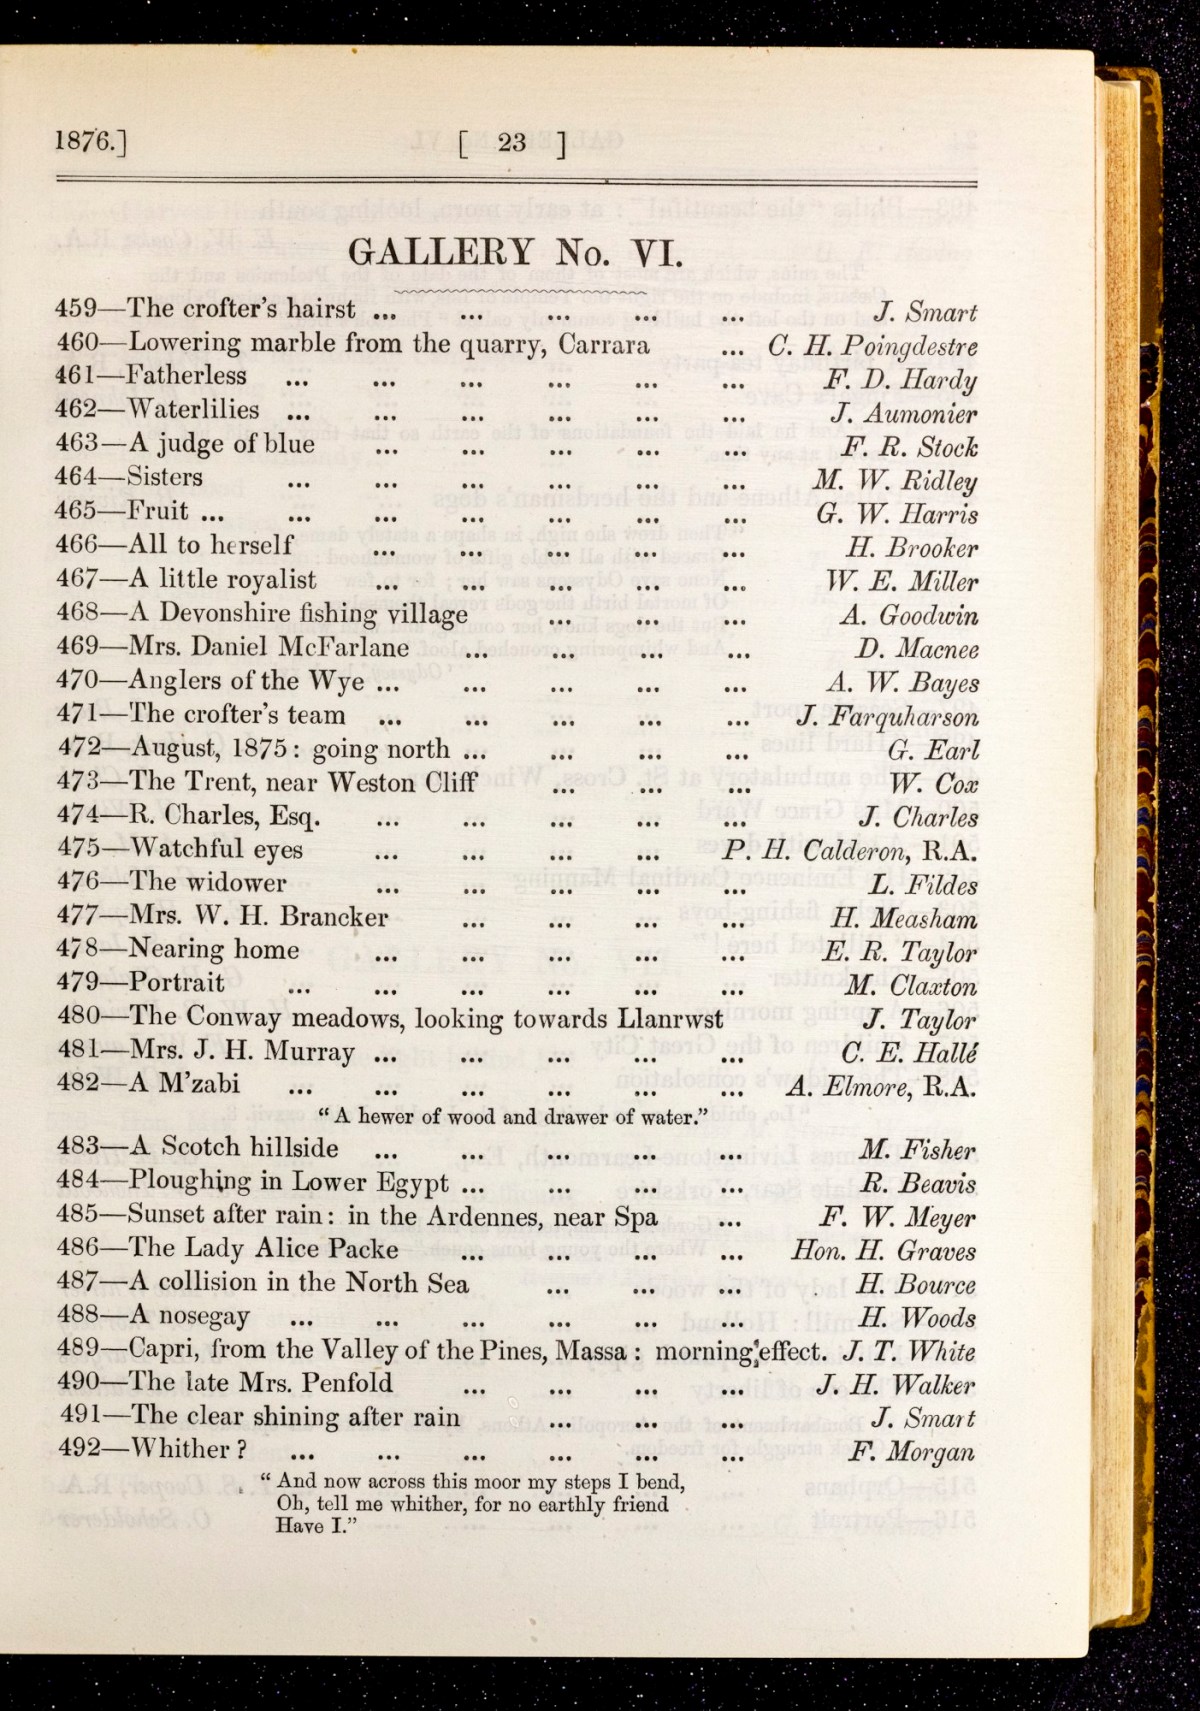 1876.] [ 23 ]
GALLERY No. VI.
459—The crofter's hairst ... ... ... ... ... J. Smart
460—Lowering marble from the quarry, Carrara ... C. H. Poingdestre
461—Fatherless ... ... ... ... ... ... F. D. Hardy
462—Waterlilies ... ... ... ... ... ... J. Aumonier
463—A judge of blue ... ... ... ... ... F. R. Stock
464—Sisters ... ... ... ... ... ... M. W. Ridley
465—Fruit ... ... ... ... ... ... ... G. W. Harris
466—All to herself ... ... ... ... ... H. Brooker
467—A little royalist ... ... ... ... ... W. E. Miller
468—A Devonshire fishing village ... ... ... A. Goodwin
469—Mrs. Daniel McFarlane ... ... ... ... D. Macnee
470—Anglers of the Wye ... ... ... ... ... A. W. Bayes
471—The crofter's team ... ... ... ... ... J. Farquharson
472—August, 1875: going north ... ... ... ... G. Earl
473—The Trent, near Weston Cliff ... ... ... W. Cox
474—R. Charles, Esq. ... ... ... ... ... J. Charles
475—Watchful eyes ... ... ... ... P. H. Calderon, R.A.
476—The widower ... ... ... ... ... L. Fildes
477—Mrs. W. H. Brancker ... ... ... ... H. Measham
478—Nearing home ... ... ... ... ... E. R. Taylor
479—Portrait ... ... ... ... ... ... M. Claxton
480—The Conway meadows, looking towards Llanrwst J. Taylor
481—Mrs. J. H. Murray ... ... ... ... ... C. E. Hallé
482—A M'zabi ... ... ... ... ... ... A. Elmore, R.A.
"A hewer of wood and drawer of water."
483—A Scotch hillside ... ... ... ... ... M. Fisher
484—Ploughing in Lower Egypt ... ... ... ... R. Beavis
485—Sunset after rain: in the Ardennes, near Spa ... F. W. Meyer
486—The Lady Alice Packe ... ... ... ... Hon. H. Graves
487—A collision in the North Sea ... ... ... H. Bource
488—A nosegay ... ... ... ... ... ... H. Woods
489—Capri, from the Valley of the Pines, Massa: morning effect. J. T. White
490—The late Mrs. Penfold ... ... ... ... J. H. Walker
491—The clear shining after rain ... ... ... J. Smart
492—Whither? ... ... ... ... ... ... F. Morgan
"And now across this moor my steps I bend,
Oh, tell me whither, for no earthly friend
Have I."